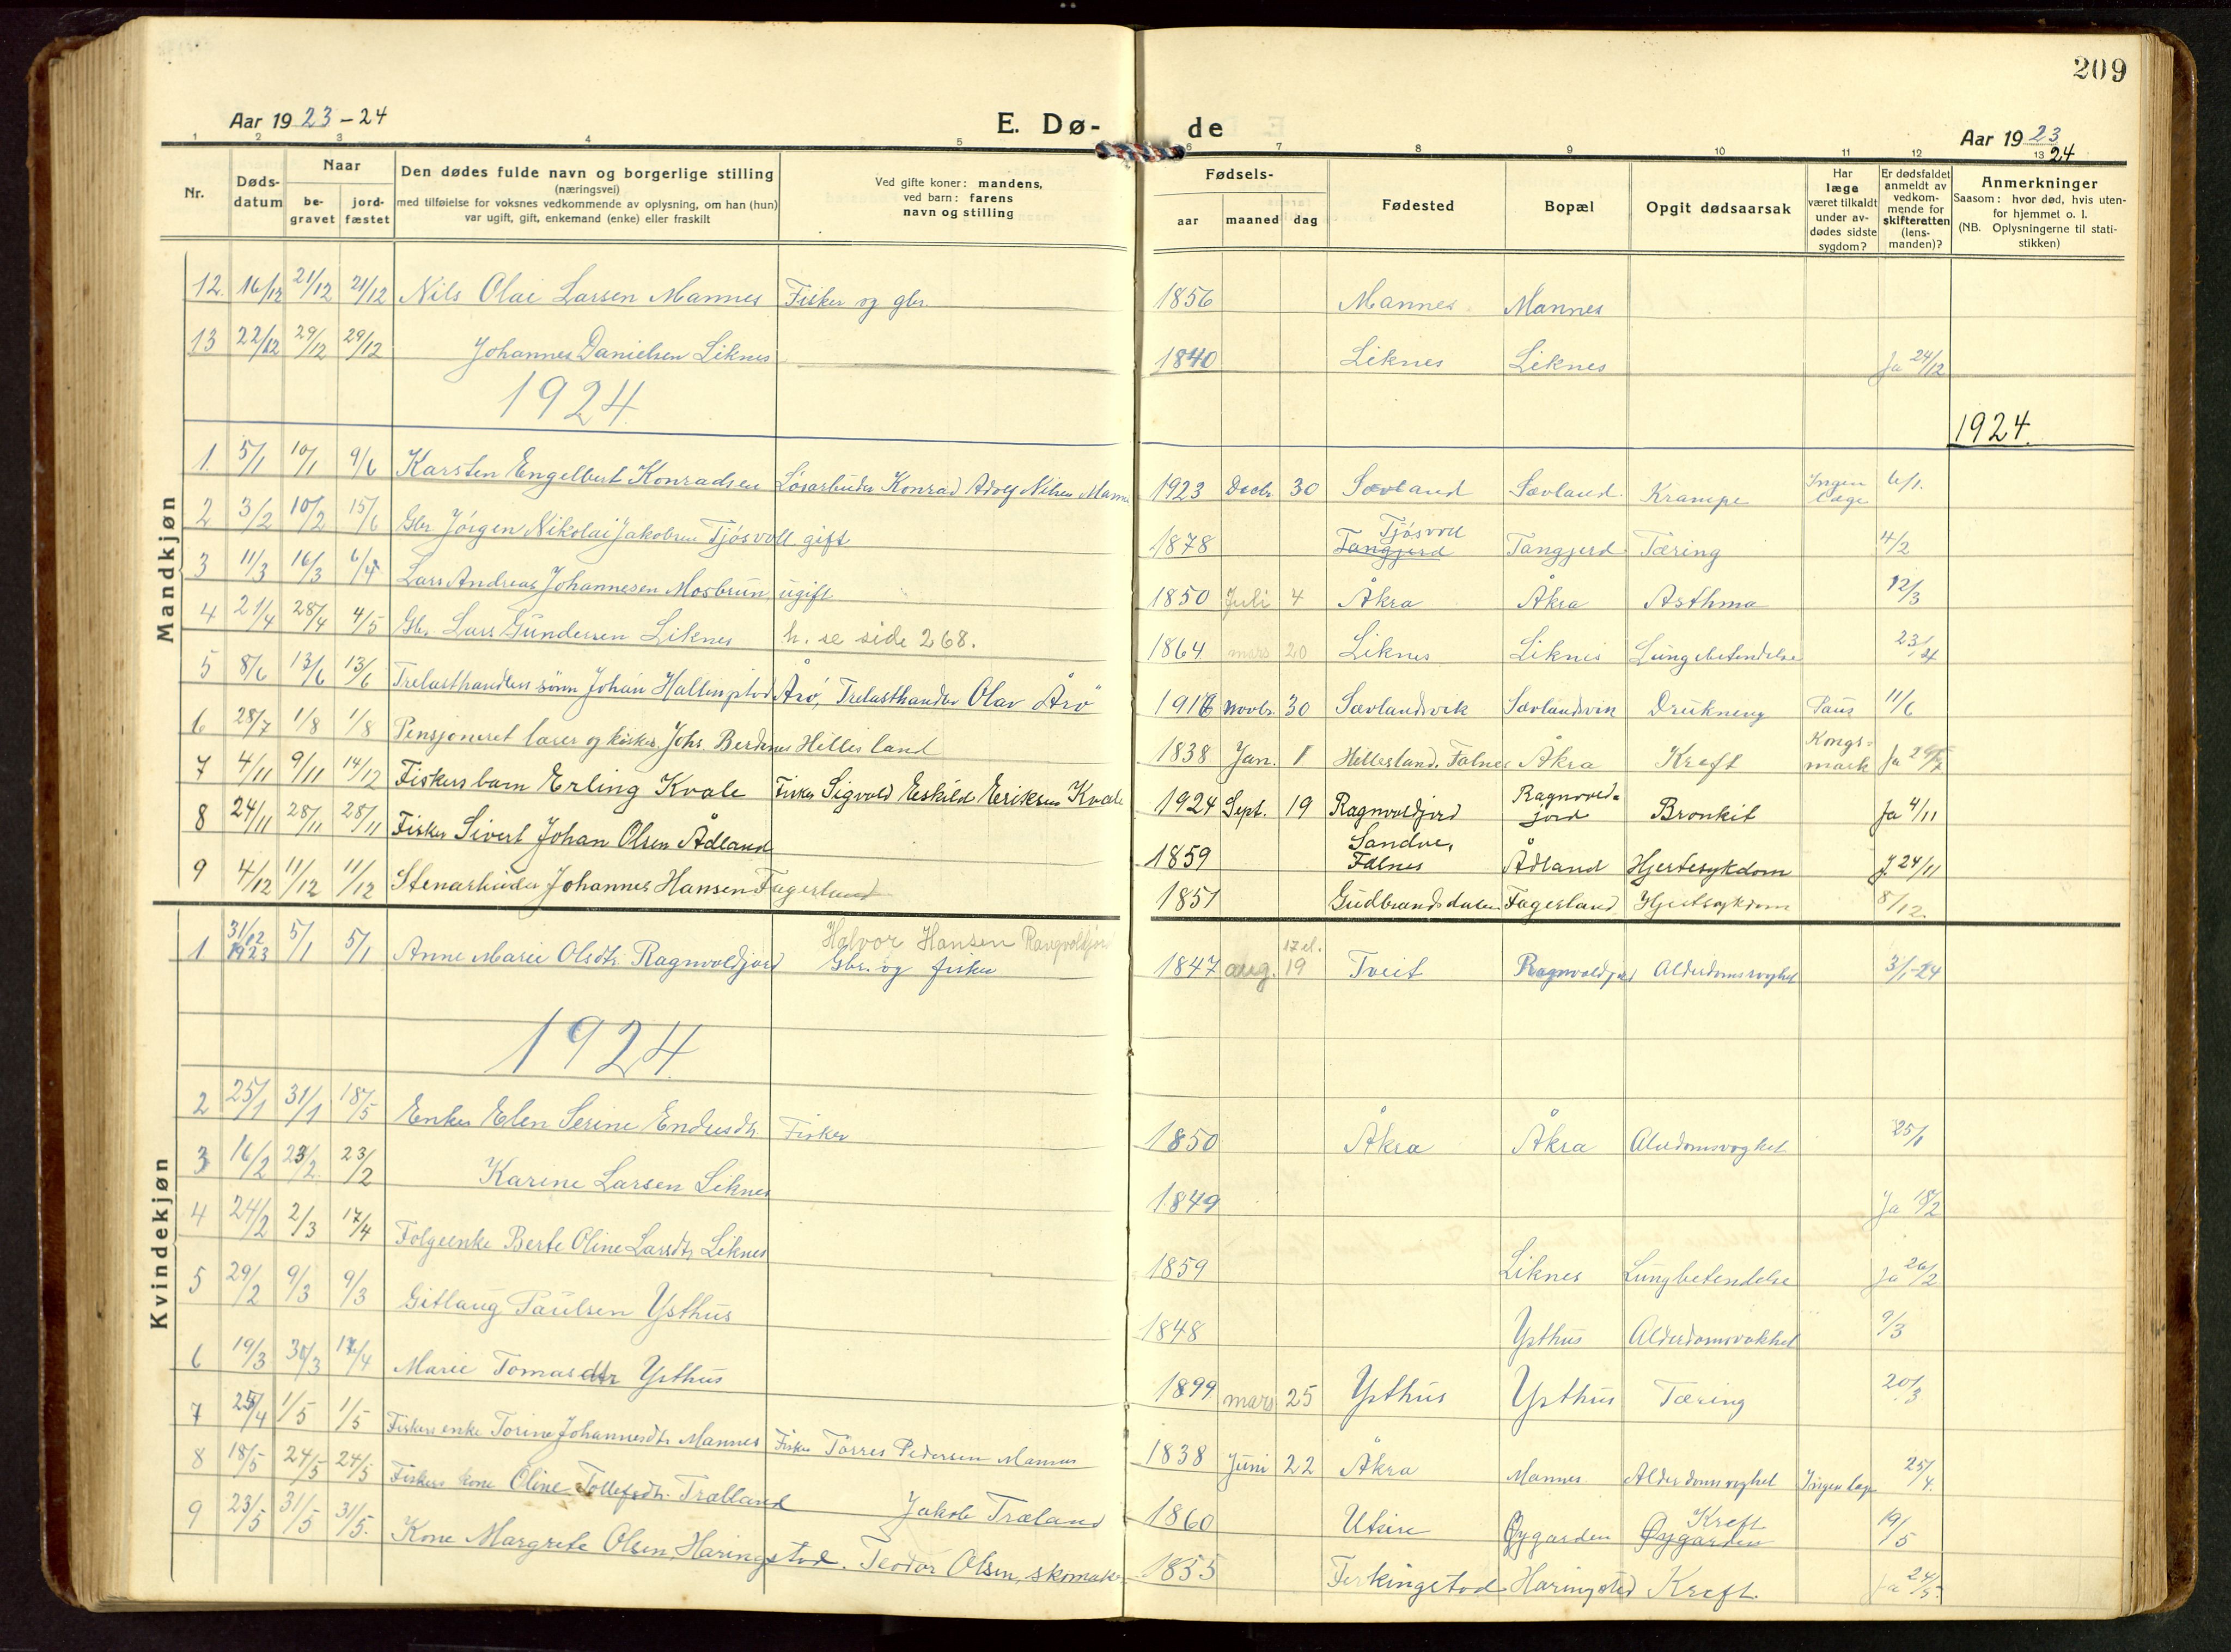 209
Aar 19 23 - 24
E. Dø- de
Aar 19 23
24
1 2 3 4 5 6 7 8 9 10 11 12 13
Nr.
Døds-
datum
Naar
be-
gravet
jord-
fæstet
Den dødes fulde navn og borgerlige stilling
(næringsvei)
med tilføielse for voksnes vedkommende av oplysning, om han (hun)
var ugift, gift, enkemand (enke) eller fraskilt
Ved gifte koner: mandens,
ved barn: farens
navn og stilling
Fødsels-
aar maaned dag
Fødested
Bopæl
Opgit dødsaarsak
Har
læge
været tilkaldt
under av-
dødes sidste
sygdom?
Er dødsfaldet
anmeldt av
vedkom-
mende for
skifteretten
(lens-
manden)?
Anmerkninger
Saasom: hvor død, hvis uten-
for hjemmet o. l.
(NB. Oplysningerne til stati-
stikken)
Mandkjøn
12. 16/12 21/12 21/12 Nils Olai Larsen Mannes Fisker og gbr. 1856 Mannes Mannes
13 22/12 29/12 29/12 Johannes Danielsen Liknes 1840 Liknes Liknes Ja 24/12
1924
1924.
1. 5/1 10/1 9/6 Karsten Engelbert Konradsen Løsarbeider Konrad Adolf Nilsen Mannes 1923 Decbr. 30 Sævland Sævland Krampe Ingen læge 6/1.
2 3/2 10/2 15/6 Gbr Jørgen Nikolai Jakobsen Tjøsvoll gift 1878 Tangjerd Tjøsvoll Tangjerd Tæring 4/2
3 11/3 16/3 6/4 Lars Andreas Johannesen Mosbrun ugift 1850 Juli 4 Åkra Åkra Asthma 12/3
4 21/4 28/4 4/5 Gbr Lars Gundersen Liknes h. se side 268. 1864 mars 20 Liknes Liknes Lungebetendelse 23/4
5 8/6 13/6 13/6 Trelasthandlers sønn Johan Hallingstad Årø, Trelasthandler Olav Årø 1916 Novbr. 30 Sævlandsvik Sævlandsvik Drukning Paus 11/6
6 28/7 1/8 1/8 Pensjoneret lærer og kirkes. Johs. Berdines Hillesland 1838 Jan. 1 Hillesland, Falnes Åkra Kreft Kongs-
mark Ja 29/7
7 4/11 9/11 14/12 Fiskers barn Erling Kvale Fisker Sigvald Eskild Eriksen Kvale 1924 Sept. 19 Ragnvaldjord Ragnvald-
jord Bronkit Ja 4/11
8 24/11 28/11 28/11 Fisker Sivert Johan Olsen Ådland 1859 Sandve,
Falnes Ådland Hjertesykdom J. 24/11
9 4/12 11/12 11/12 Stenarbeider Johannes Hansen Fagerland 1851 Gudbrandsdalen Fagerland Hjertsykdom 8/12.
Kvindekjøn
1 31/12 1923 5/1 5/1 Anne Marie Olsdtr. Ragnvaldjord Halvor Hansen Rangvaldjord
Gbr. og fisker 1847 aug. 17 el. 19 Tveit Ragnvaldjord Alderdomsvaghet 3/1-24
1924
2 25/1 31/1 18/5 Enke Elen Serine Endresdtr. Fisker 1850 Åkra Åkra Alderdomsvaghet 25/1
3 16/2 23/2 23/2 Karine Larsen Liknes 1849 Ja 18/2
4 24/2 2/3 17/4 Folgeenke Berte Oline Larsdtr Liknes 1859 Liknes Lungbetendelse Ja 26/2
5 29/2 9/3 9/3 Gitlaug Paulsen Ysthus 1848 Ysthus Alderdomsvakhet 9/3
6 19/3 30/3 /4 Marie Tomasdtr Ysthus 1899 mars 25 Ysthus Ysthus Tæring 20/3
7 25/4 1/5 1/5 Fiskers enke Torine Johannesdtr Mannes Fisker Tørres Pedersen Mannes 1838 Juni 22 Åkra Mannes Alderdomsvaghet Ingen læge 25/4.
8 18/5 24/5 24/5 Fiskers kone Oline Tollefsdtr. Trælland Jakob Træland 1860 Utsire Øygarden Øygarden Kreft 19/5
9 23/5 31/5 31/5. Kone Margrete Olsen, Haringstad. Teodor Olsen, skomaker 1855 Ferkingstad Haringstad Kreft. Ja 24/5.